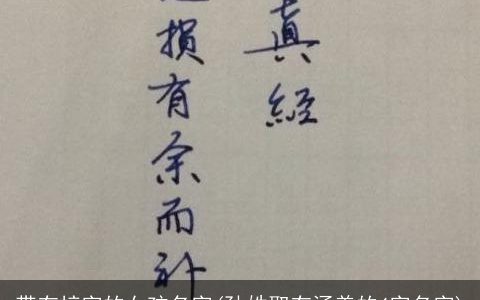 真經
損有余而补
带有字的女孩名字(孙姓取有涵养的字名字)